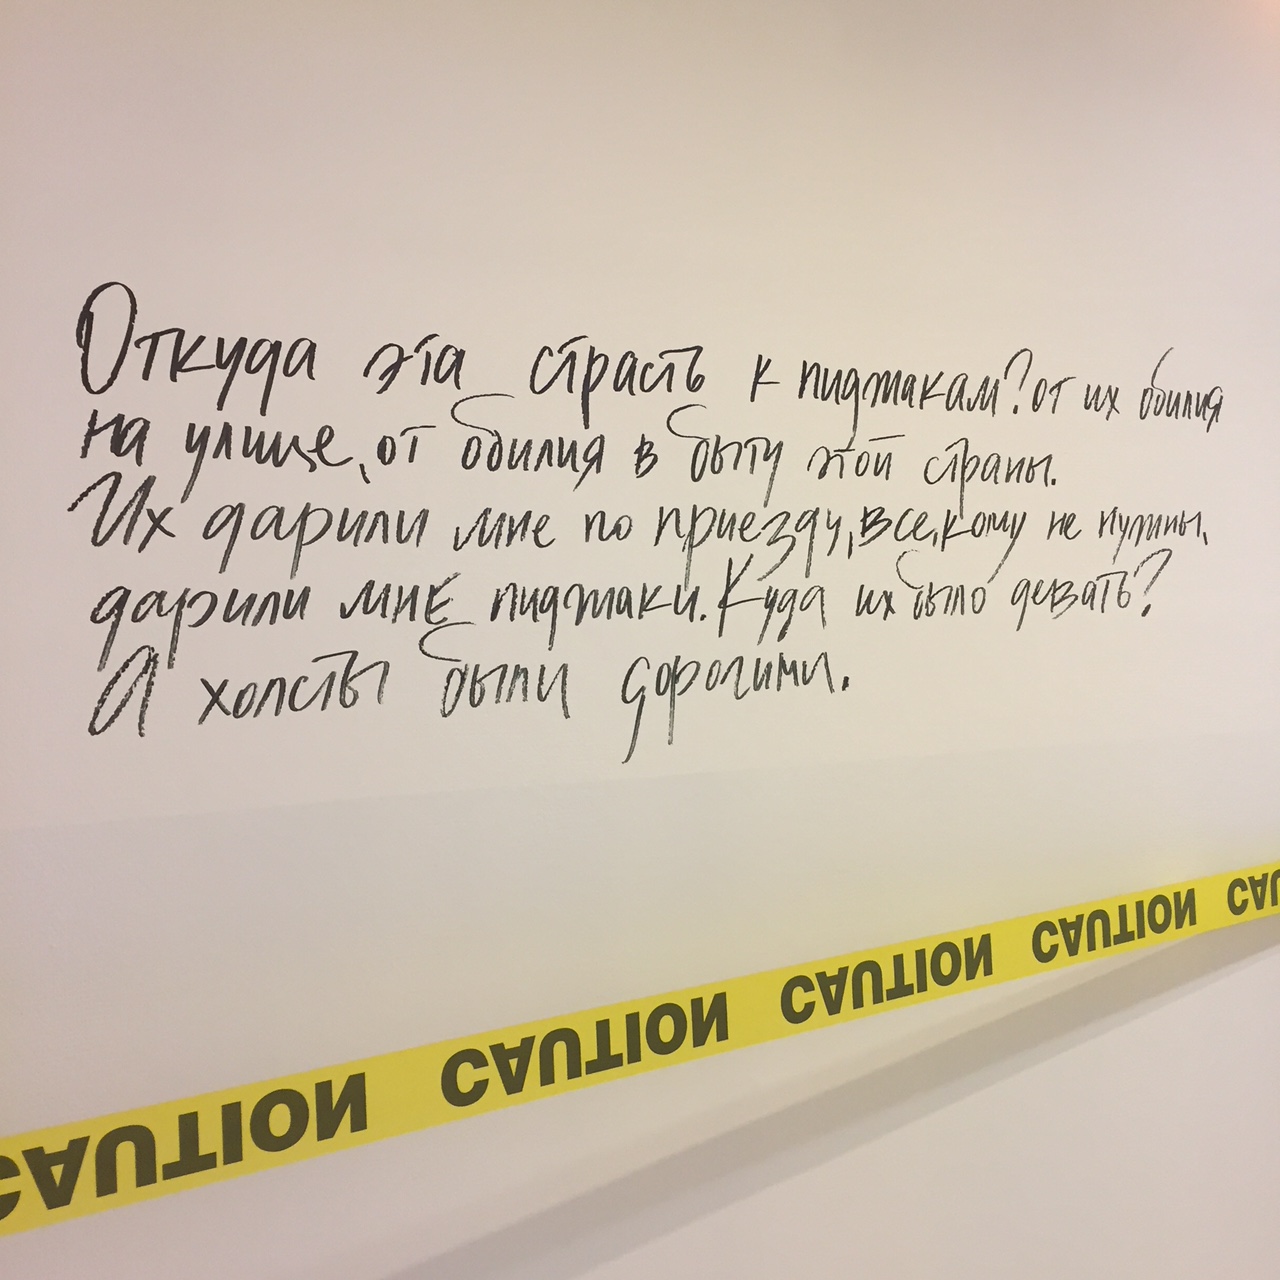 Откуда эта страсть к пиджакам? от их обилия
на улице, от обилия в быту этой страны.
Их дарили мне по приезду, все, кому не нужны,
дарили мне пиджаки. Куда их было девать?
А холсты были дорогими.
CAUTION CAUTION CAUTION CAUTION CAU